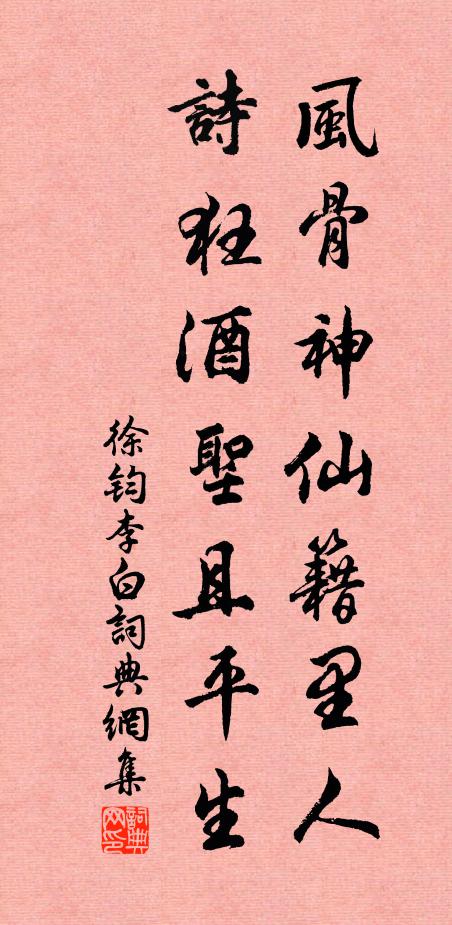 風骨神仙籍里人
詩狂酒聖且平生
徐鈞李白詞典網集
詞典网印